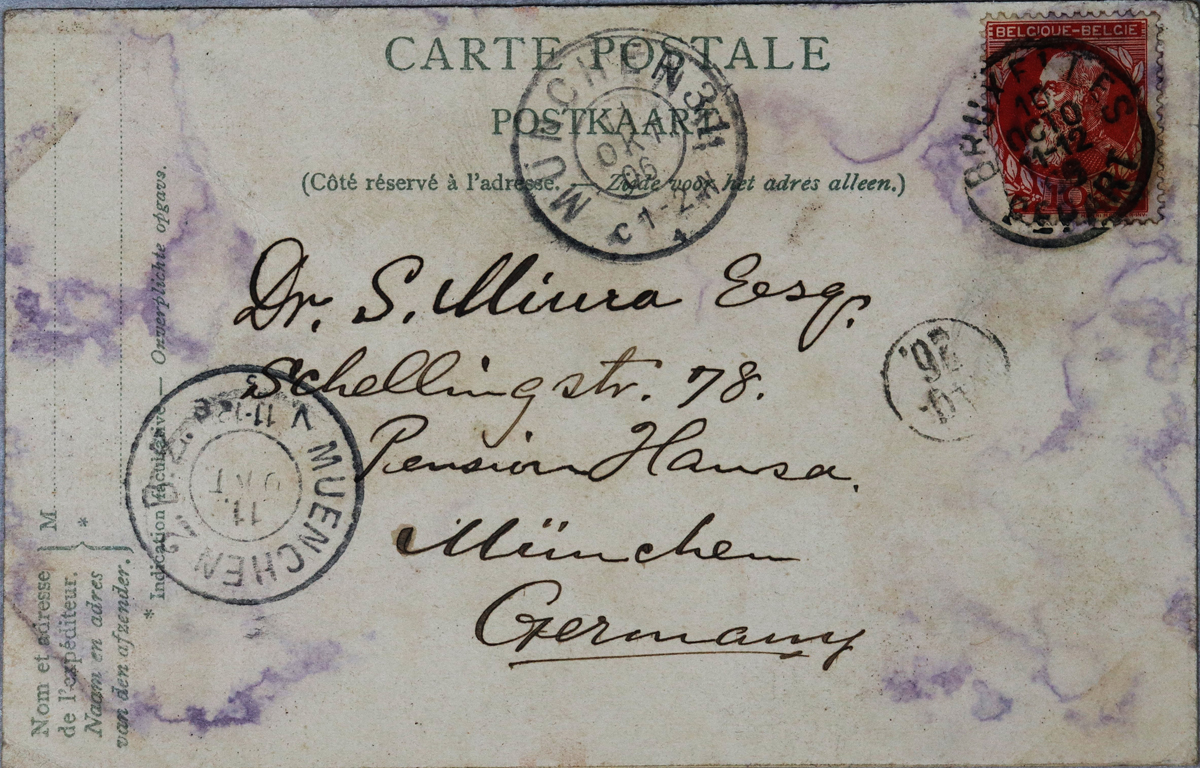 CARTE POSTALE
POSTKAART
(Côté réservé à l'adresse. — Zijde voor het adres alleen.)
BELGIQUE-BELGIE
BRUXELLES
10
OCTO
11-12
DEPART
MÜNCHEN
OKT
06
C 1-2 N
Dr. S. Miura Esq.
Schellingstr. 78.
Pension Hansa.
München
Germany
MUENCHEN
11
OKT
V. 11-12
Nom et adresse
de l'expéditeur.
Naam en adres
van den afzender.
M
*
* Indication facultative — Onverplichte opgave.